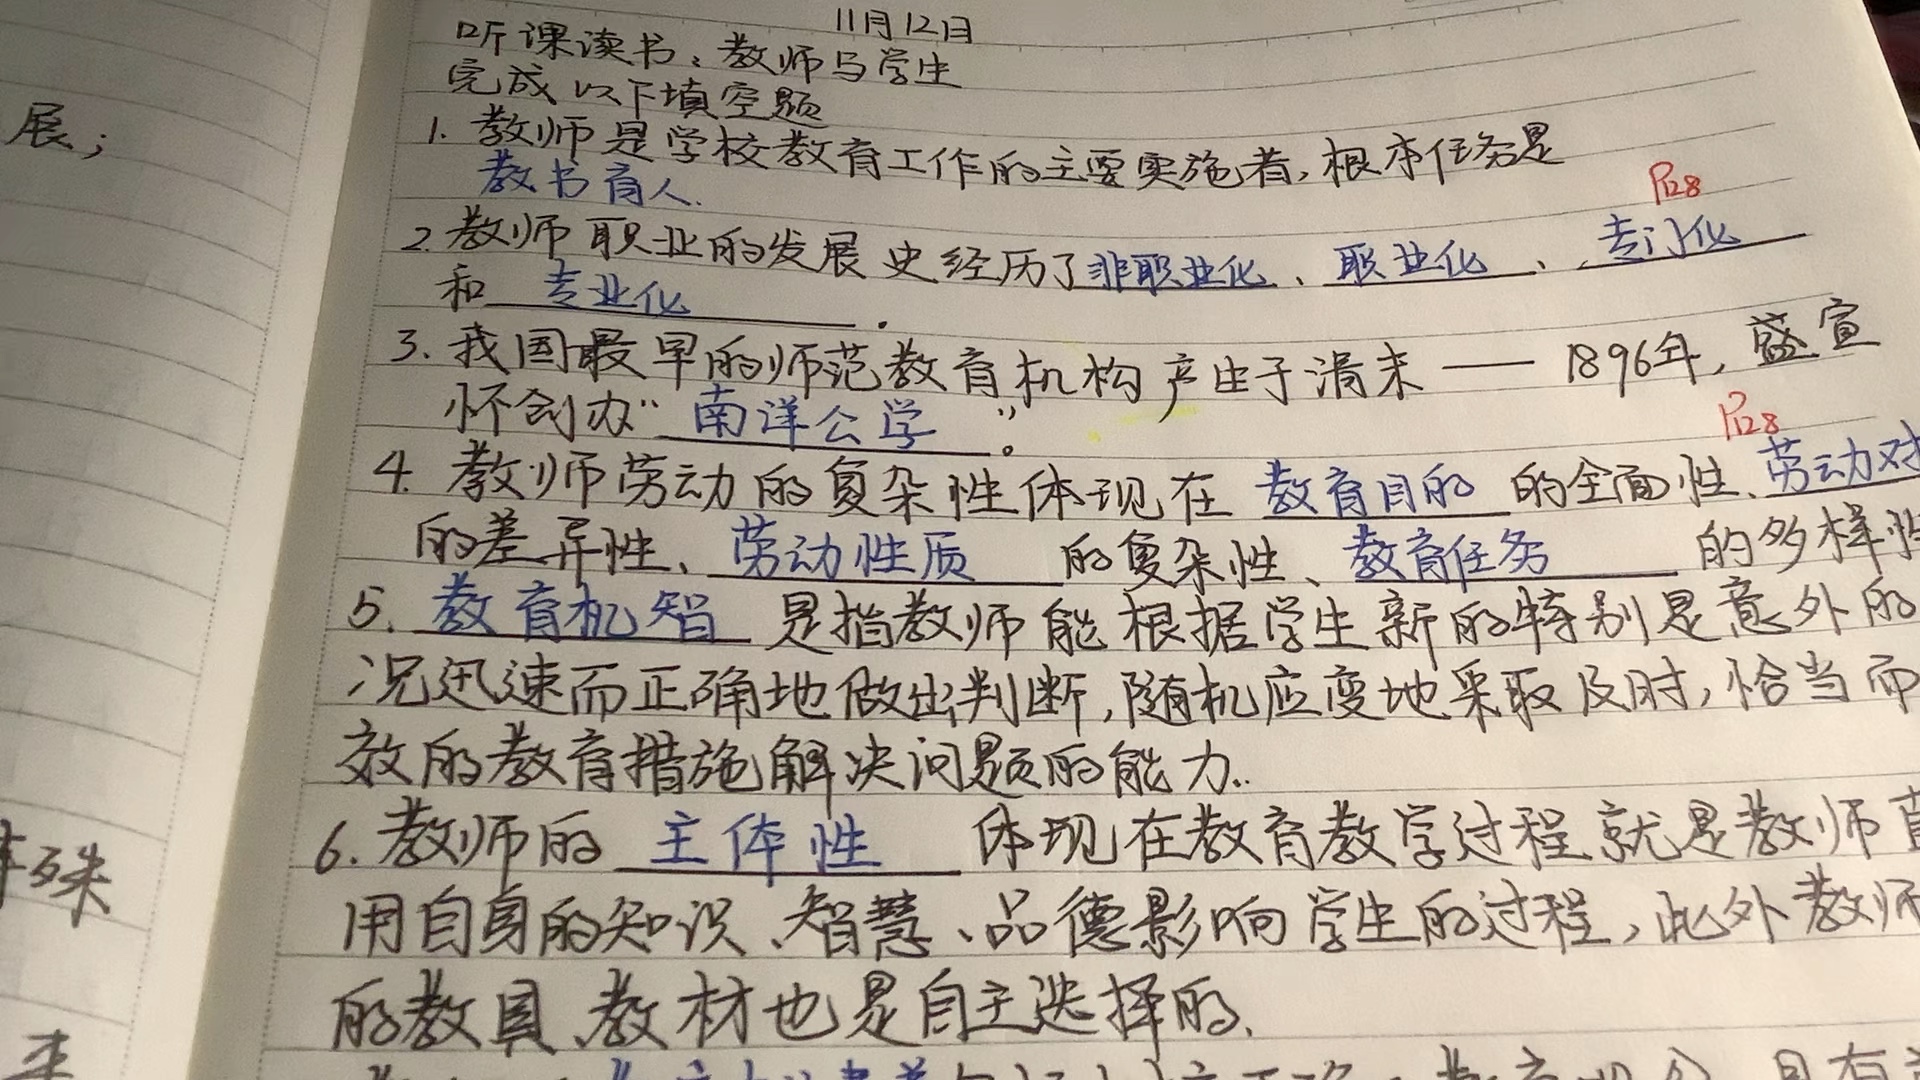 展；
殊
11月12日
听课读书：教师与学生
完成以下填空题
1. 教师是学校教育工作的主要实施者，根本任务是
教书育人.
P128
2. 教师职业的发展史经历了非职业化、职业化、专门化
和 专业化.
3. 我国最早的师范教育机构产生于清末——1896年，盛宣
怀创办“南洋公学”。
P128
4. 教师劳动的复杂性体现在 教育目的 的全面性、劳动对
的差异性、劳动性质 的复杂性、教育任务 的多样性
5. 教育机智 是指教师能根据学生新的特别是意外的
况迅速而正确地做出判断，随机应变地采取及时，恰当而
效的教育措施解决问题的能力..
6. 教师的 主体性 体现在教育教学过程就是教师直
用自身的知识、智慧、品德影响学生的过程，此外教师
的教具、教材也是自主选择的.